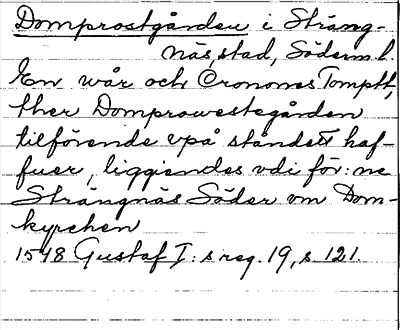 Domprostgården i Sträng-
näs stad, Söderm. l.
En wår och Cronones Tomptt,
ther Domprowestegården
tilförende vpå ståndett haf-
fuer, liggiendes vdi för:ne
Strängnäs Söder om Dom-
kyrchen
1548 Gustaf I: s reg. 19, s. 121.